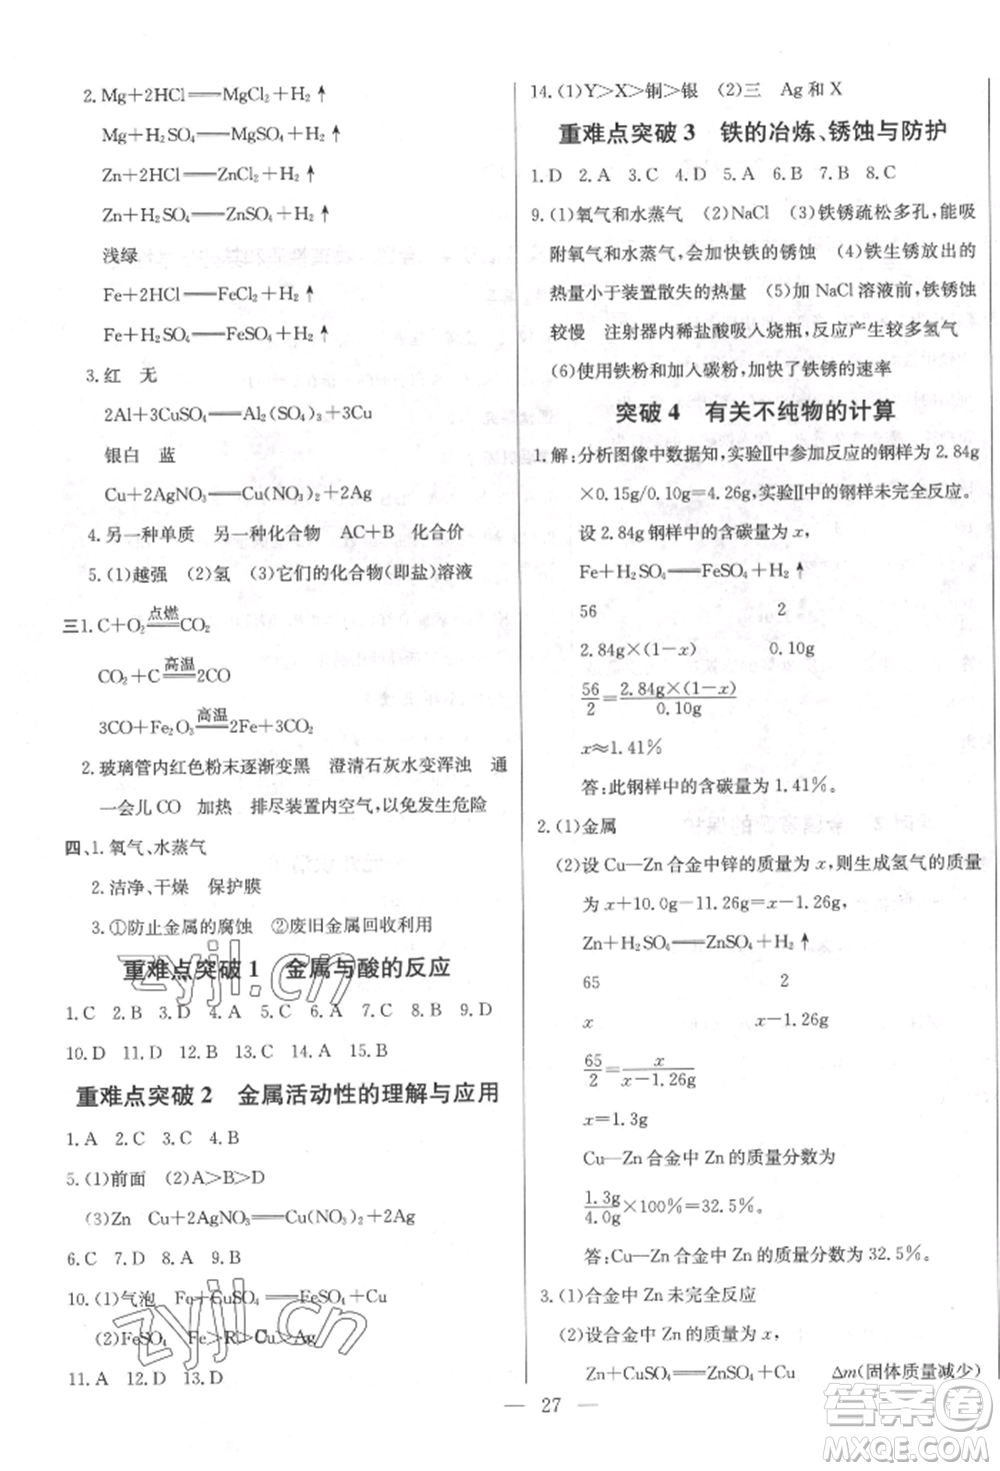 2. Mg+2HCl══MgCl₂+H₂↑
Mg+H₂SO₄══MgSO₄+H₂↑
Zn+2HCl══ZnCl₂+H₂↑
Zn+H₂SO₄══ZnSO₄+H₂↑
浅绿
Fe+2HCl══FeCl₂+H₂↑
Fe+H₂SO₄══FeSO₄+H₂↑
3. 红 无
2Al+3CuSO₄══Al₂(SO₄)₃+3Cu
银白 蓝
Cu+2AgNO₃══Cu(NO₃)₂+2Ag
4. 另一种单质 另一种化合物 AC+B 化合价
5. (1)越强 (2)氢 (3)它们的化合物(即盐)溶液
三1. C+O₂═点燃═CO₂
CO₂+C═高温═2CO
3CO+Fe₂O₃═高温═2Fe+3CO₂
2. 玻璃管内红色粉末逐渐变黑 澄清石灰水变浑浊 通
一会儿 CO 加热 排尽装置内空气,以免发生危险
四、1. 氧气、水蒸气
2. 洁净、干燥 保护膜
3. ①防止金属的腐蚀 ②废旧金属回收利用
重难点突破 1 金属与酸的反应
1. C 2. B 3. D 4. A 5. C 6. A 7. C 8. B 9. D
10. D 11. D 12. B 13. D 14. A 15. B
重难点突破 2 金属活动性的理解与应用
1. A 2. C 3. C 4. B
5. (1)前面 (2)A>B>D
(3)Zn Cu+2AgNO₃══Cu(NO₃)₂+2Ag
6. C 7. D 8. A 9. B
10. (1)气泡 Fe+CuSO₄══FeSO₄+Cu
(2)FeSO₄ Fe>R>Cu>Ag
11. A 12. D 13. D
14. (1)Y>X>铜>银 (2)三 Ag 和 X
重难点突破 3 铁的冶炼、锈蚀与防护
1. D 2. A 3. C 4. D 5. A 6. B 7. B 8. C
9. (1)氧气和水蒸气 (2)NaCl (3)铁锈疏松多孔,能吸
附氧气和水蒸气,会加快铁的锈蚀 (4)铁生锈放出的
热量小于装置散失的热量 (5)加 NaCl 溶液前,铁锈蚀
较慢 注射器内稀盐酸吸入烧瓶,反应产生较多氢气
(6)使用铁粉和加入碳粉,加快了铁锈的速率
突破 4 有关不纯物的计算
1. 解:分析图像中数据知,实验Ⅱ中参加反应的钢样为 2.84g
×0.15g/0.10g=4.26g,实验Ⅱ中的钢样未完全反应。
设 2.84g 钢样中的含碳量为 x,
Fe+H₂SO₄══FeSO₄+H₂↑
56 2
2.84g×(1-x) 0.10g
56/2=2.84g×(1-x)/0.10g
x≈1.41%
答:此钢样中的含碳量为 1.41%。
2. (1)金属
(2)设 Cu—Zn 合金中锌的质量为 x,则生成氢气的质量
为 x+10.0g-11.26g=x-1.26g
Zn+H₂SO₄══ZnSO₄+H₂↑
65 2
x x-1.26g
65/2=x/(x-1.26g)
x=1.3g
Cu—Zn 合金中 Zn 的质量分数为
1.3g/4.0g×100%=32.5%。
答:Cu—Zn 合金中 Zn 的质量分数为 32.5%。
3. (1)合金中 Zn 未完全反应
(2)设合金中 Zn 的质量为 x,
Zn+CuSO₄══ZnSO₄+Cu Δm(固体质量减少)
— 27 —
zyjl.cn
zyjl.cn
答案圈
MXQE.COM